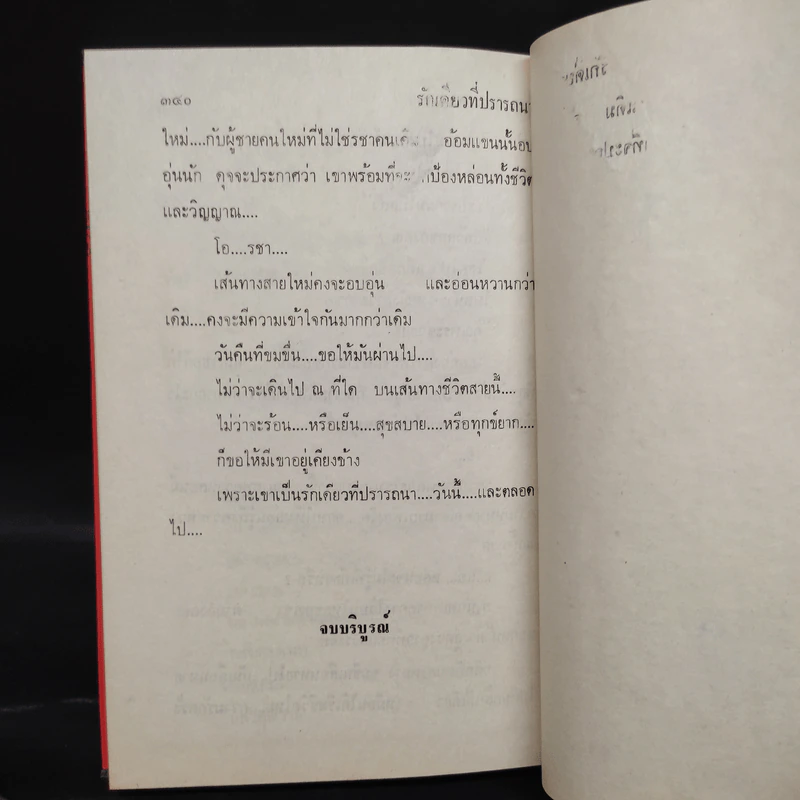 ๓๔๐ รักเดียวที่ปรารถนา
ใหม่....กับผู้ชายคนใหม่ที่ไม่ใช่รชาคนเดิม อ้อมแขนนั้นอบ
อุ่นนัก ดุจจะประกาศว่า เขาพร้อมที่จะปกป้องหล่อนทั้งชีวิต
และวิญญาณ....
โอ....รชา....
เส้นทางสายใหม่คงจะอบอุ่น และอ่อนหวานกว่า
เดิม....คงจะมีความเข้าใจกันมากกว่าเดิม
วันคืนที่ขมขื่น....ขอให้มันผ่านไป....
ไม่ว่าจะเดินไป ณ ที่ใด บนเส้นทางชีวิตสายนี้....
ไม่ว่าจะร้อน....หรือเย็น....สุขสบาย....หรือทุกข์ยาก....
ก็ขอให้มีเขาอยู่เคียงข้าง
เพราะเขาเป็นรักเดียวที่ปรารถนา....วันนี้....และตลอด
ไป....
จบบริบูรณ์